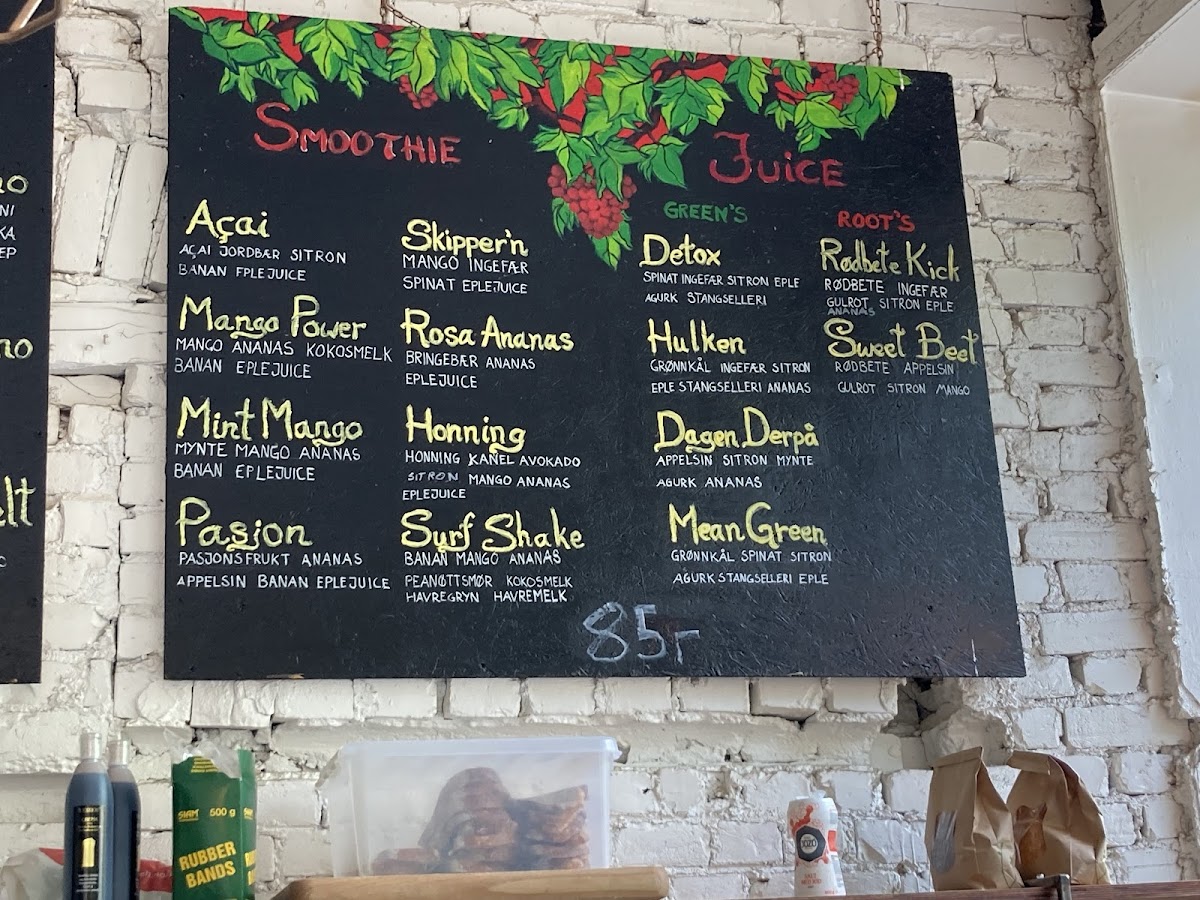 SMOOTHIE
Açai
AÇAI JORDBÆR SITRON
BANAN EPLEJUICE
Mango Power
MANGO ANANAS KOKOSMELK
BANAN EPLEJUICE
Mint Mango
MYNTE MANGO ANANAS
BANAN EPLEJUICE
Pasjon
PASJONSFRUKT ANANAS
APPELSIN BANAN EPLEJUICE
Skipper'n
MANGO INGEFÆR
SPINAT EPLEJUICE
Rosa Ananas
BRINGEBÆR ANANAS
EPLEJUICE
Honning
HONNING KANEL AVOKADO
SITRON MANGO ANANAS
EPLEJUICE
Surf Shake
BANAN MANGO ANANAS
PEANØTTSMØR KOKOSMELK
HAVREGRYN HAVREMELK
JUiCE
GREEN'S
Detox
SPINAT INGEFÆR SITRON EPLE
AGURK STANGSELLERI
Hulken
GRØNNKÅL INGEFÆR SITRON
EPLE STANGSELLERI ANANAS
Dagen Derpå
APPELSIN SITRON MYNTE
AGURK ANANAS
Mean Green
GRØNNKÅL SPINAT SITRON
AGURK STANGSELLERI EPLE
ROOT'S
Rødbete Kick
RØDBETE INGEFÆR
GULROT SITRON EPLE
ANANAS
Sweet Beet
RØDBETE APPELSIN
GULROT SITRON MANGO
85,-
SIAM 500 g
RUBBER
BANDS
JOZO